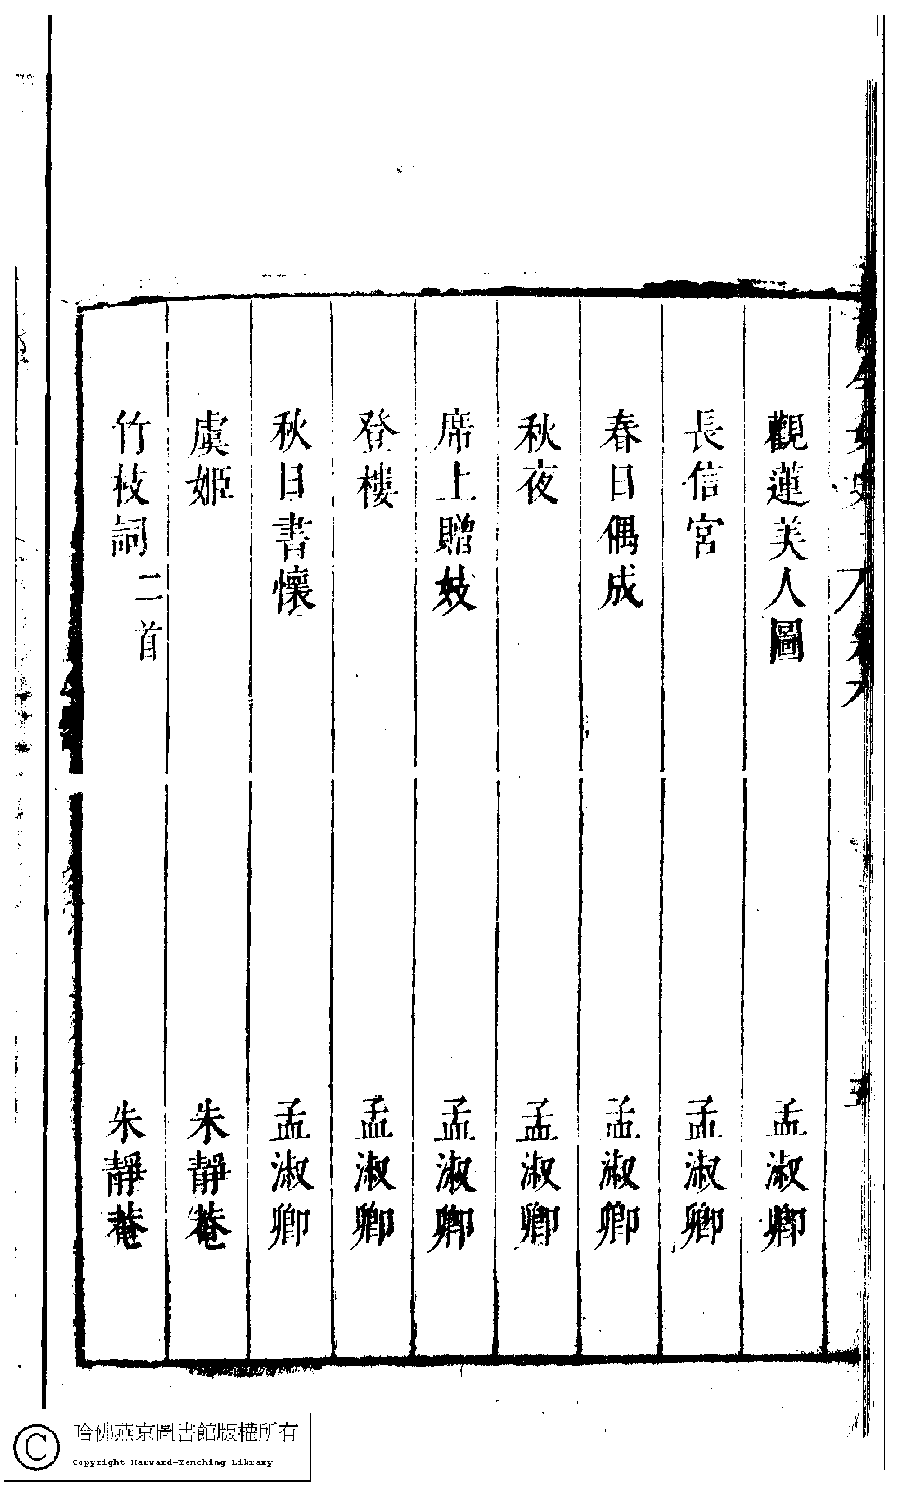 觀蓮美人圖　孟淑卿
長信宮　孟淑卿
春日偶成　孟淑卿
秋夜　孟淑卿
席上贈妓　孟淑卿
登樓　孟淑卿
秋日書懷　孟淑卿
虞姬　朱靜菴
竹枝詞二首　朱靜菴
哈佛燕京圖書館版權所有
Copyright Harvard-Yenching Library